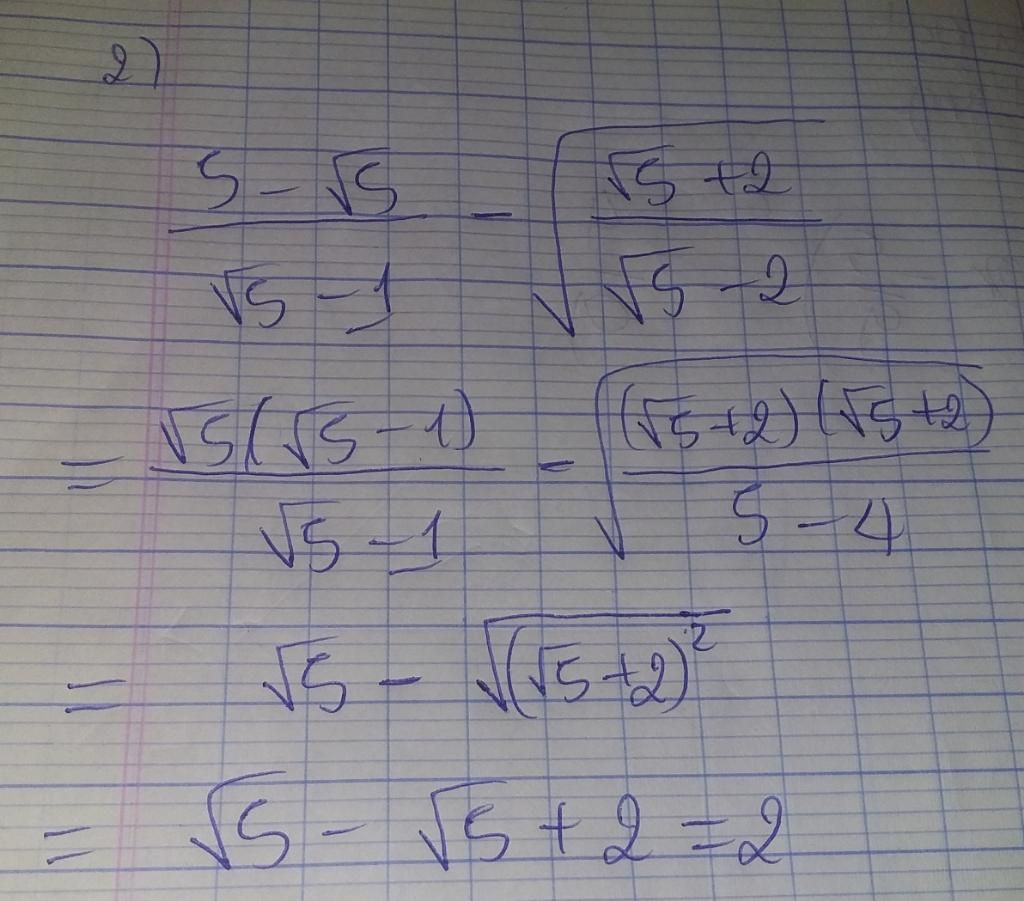 2)
(5 - √5)/(√5 - 1) - √((√5 + 2)/(√5 - 2))
= (√5(√5 - 1))/(√5 - 1) - √(((√5 + 2)(√5 + 2))/(5 - 4))
= √5 - √((√5 + 2)²)
= √5 - √5 + 2 = 2